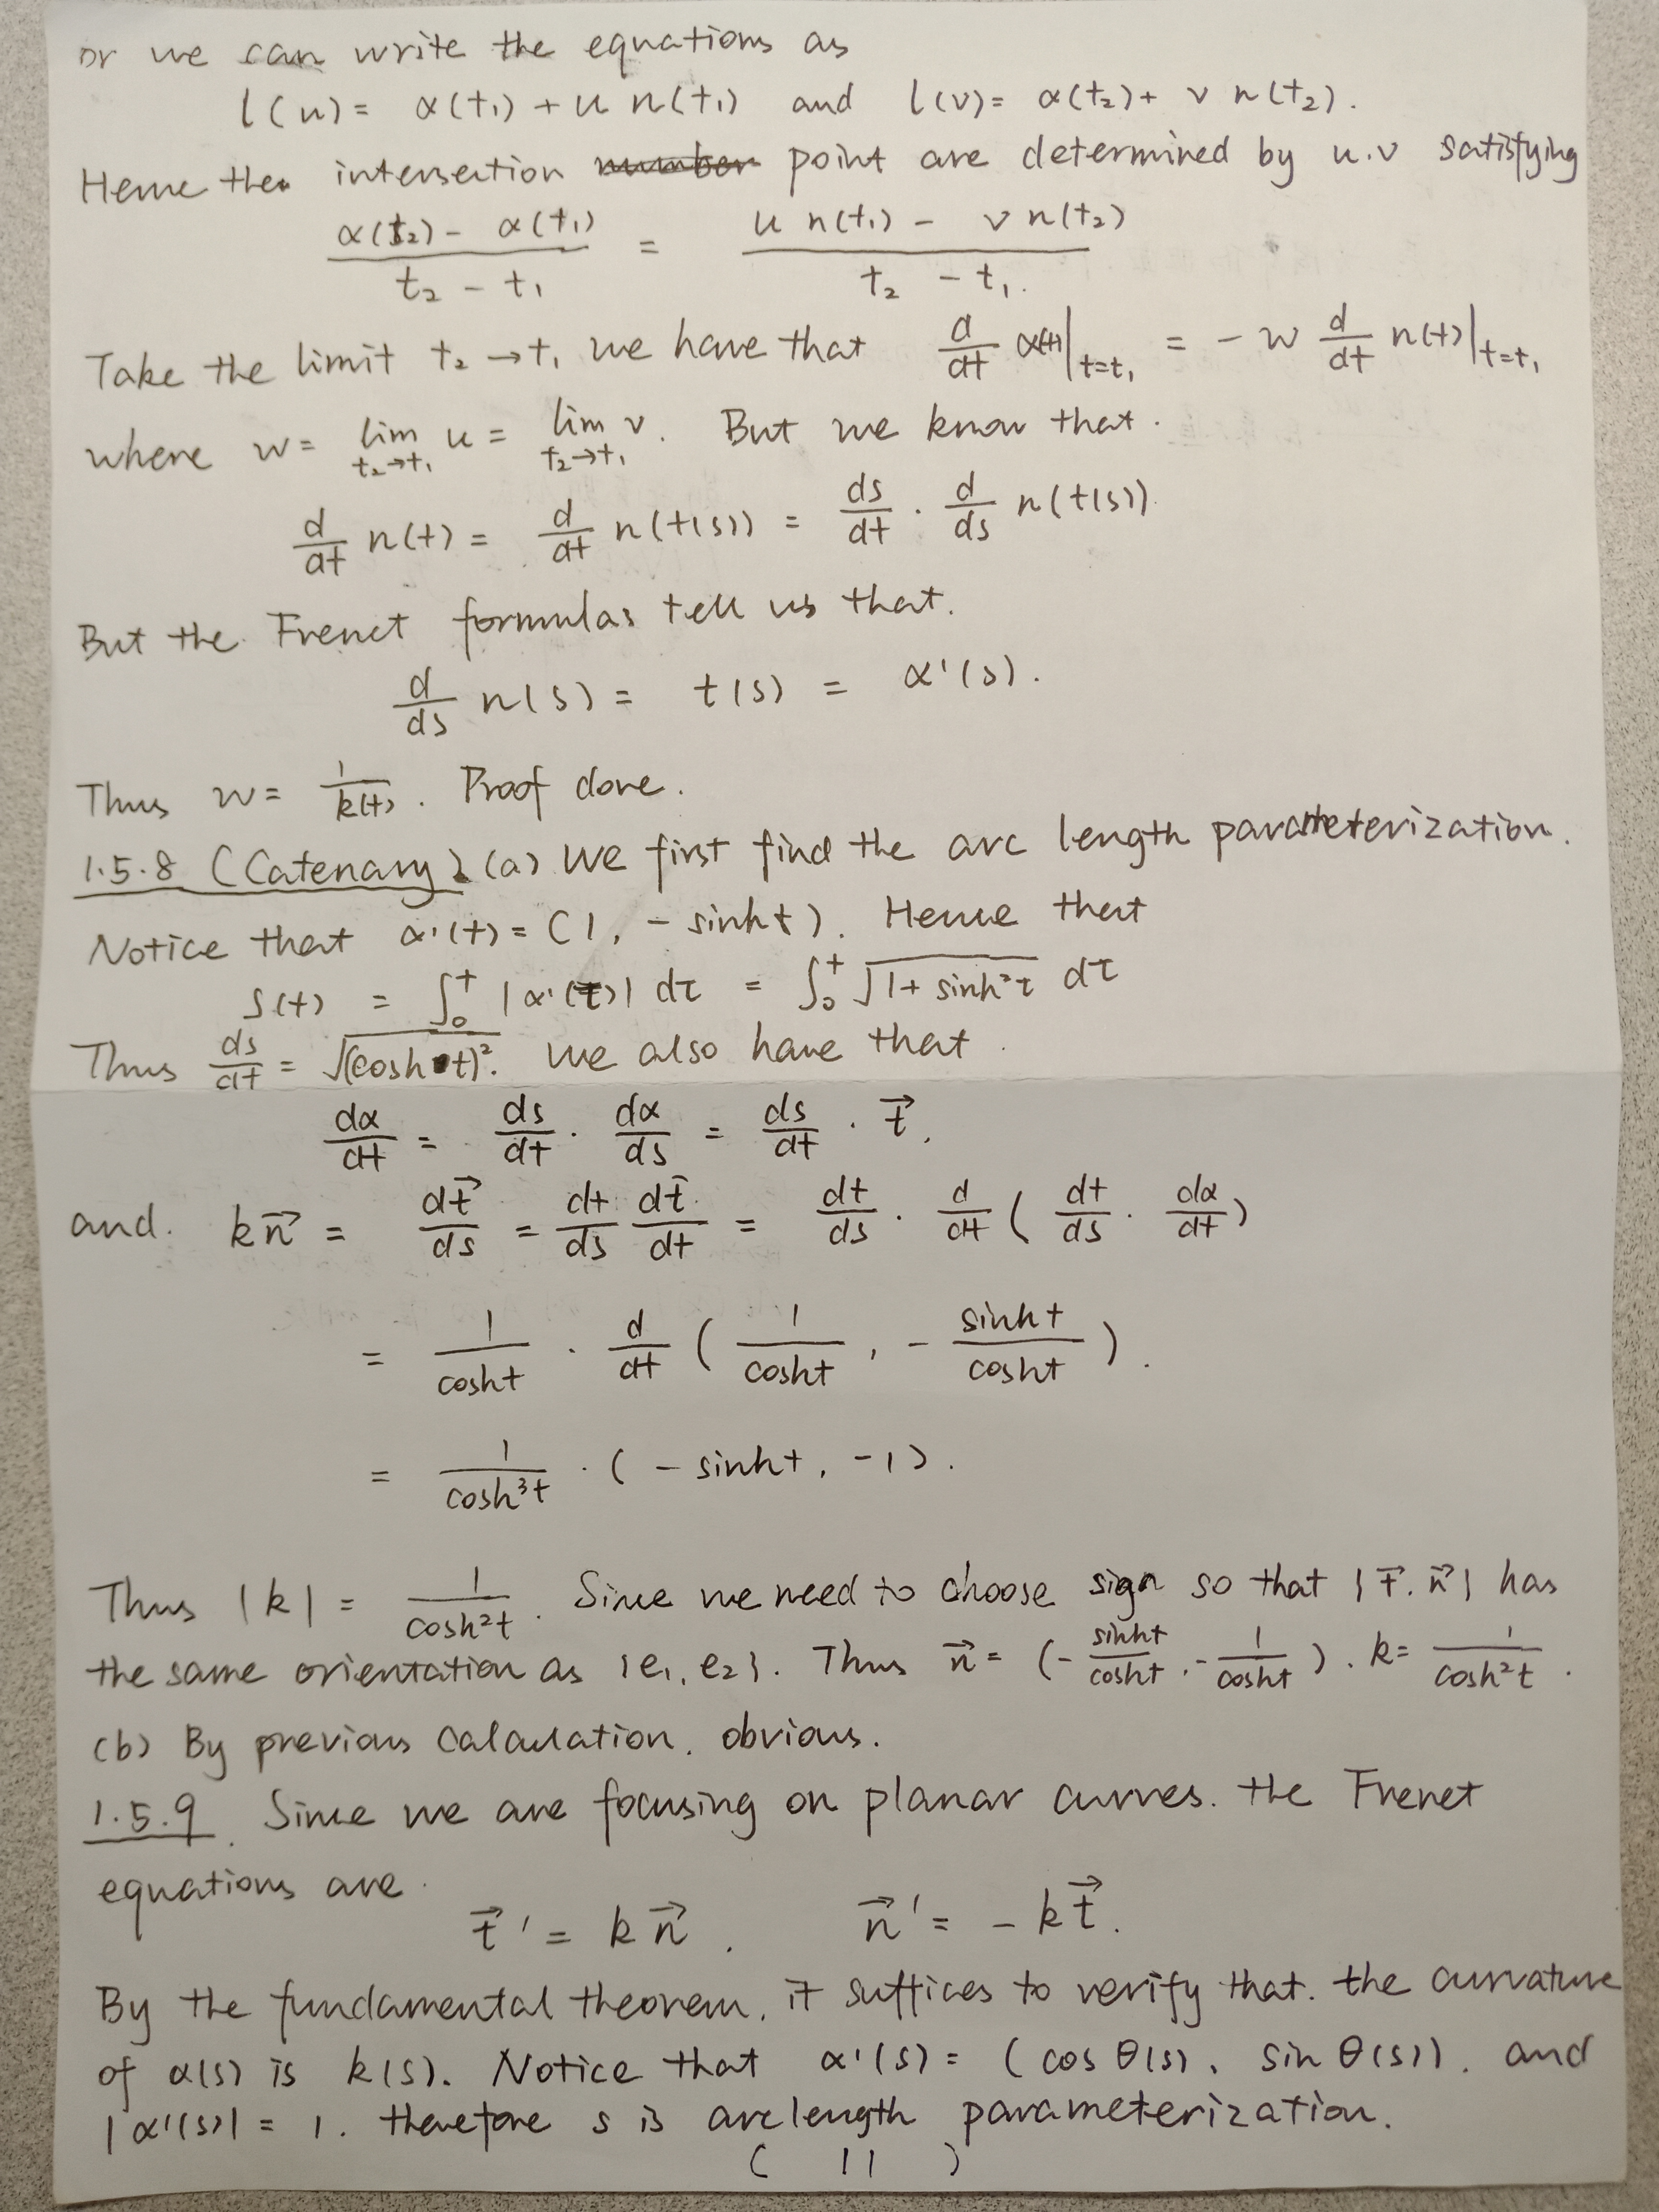 or we can write the equations as
l(u) = α(t₁) + u n(t₁) and l(v) = α(t₂) + v n(t₂).
Hence the intersection point are determined by u.v satisfying
(α(t₂) - α(t₁))/(t₂ - t₁) = (u n(t₁) - v n(t₂))/(t₂ - t₁).
Take the limit t₂ → t₁ we have that d/dt α(t)|_{t=t₁} = - w d/dt n(t)|_{t=t₁}
where w = lim_{t₂→t₁} u = lim_{t₂→t₁} v. But we know that.
d/dt n(t) = d/dt n(t(s)) = ds/dt · d/ds n(t(s)).
But the Frenet formulas tell us that.
d/ds n(s) = t(s) = α'(s).
Thus w = 1/k(t). Proof done.
1.5.8 (Catenary) (a) We first find the arc length parameterization.
Notice that α'(t) = (1, - sinht). Hence that
s(t) = ∫₀ᵗ |α'(τ)| dτ = ∫₀ᵗ √(1 + sinh²τ) dτ
Thus ds/dt = √(cosh t)². We also have that.
dα/dt = ds/dt · dα/ds = ds/dt · t⃗.
and. kn⃗ = dt⃗/ds = dt/ds dt⃗/dt = dt/ds · d/dt (dt/ds · dα/dt)
= 1/cosht · d/dt (1/cosht, - sinht/cosht).
= 1/cosh³t · (- sinht, -1).
Thus |k| = 1/cosh²t. Since we need to choose sign so that {t⃗. n⃗} has
the same orientation as {e₁, e₂}. Thus n⃗ = (- sinht/cosht, - 1/cosht). k = 1/cosh²t.
(b) By previous calculation. obvious.
1.5.9. Since we are focusing on planar curves. the Frenet
equations are.
t⃗' = kn⃗. n⃗' = - kt⃗.
By the fundamental theorem, it suffices to verify that. the curvature
of α(s) is k(s). Notice that α'(s) = (cos θ(s), sin θ(s)), and
|α'(s)| = 1. therefore s is arclength parameterization.
( 11 )